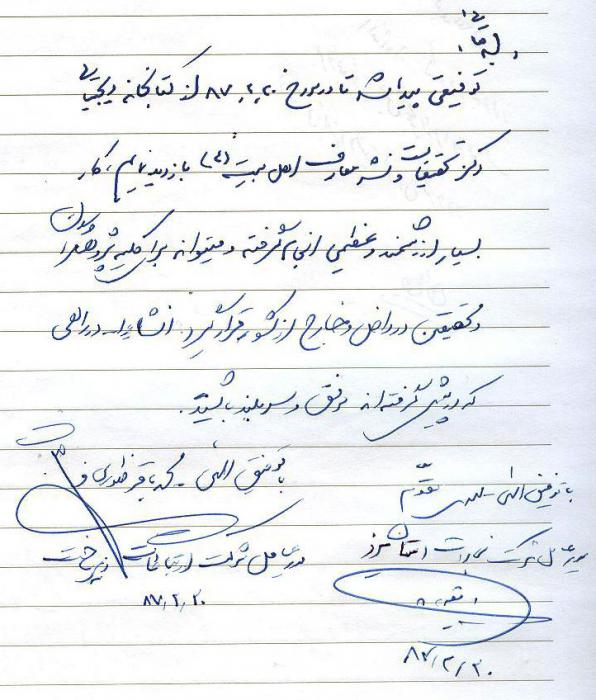 بسمه تعالی
توفیقی پیدا شد تا در مورخ ۸۷,۲,۲۰ از کتابخانه دیجیتالی
مرکز تحقیقات و نشر معارف اهل بیت (ع) بازدید نمایم، کار
بسیار ارزشمند و عظیمی انجام گرفته و میتواند برای کلیه پژوهشگران
و محققین در داخل و خارج از کشور قرار گیرد. انشاءا... در راهی
که در پیش گرفته اند موفق و سربلند باشید.
با توفیق الهی - محمد باقر
مدیر عامل شرکت ارتباطات زیرساخت
۸۷,۲,۲۰
با توفیق الهی تقدم
مدیر عامل شرکت مخابرات استان تبریز
۸۷/۲/۲۰